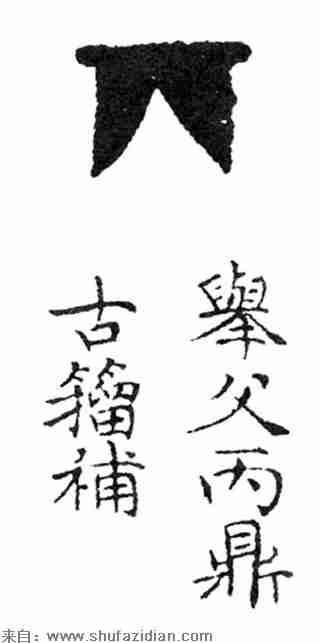 舉父丙鼎
古籀補
来自：www.shufazidian.com